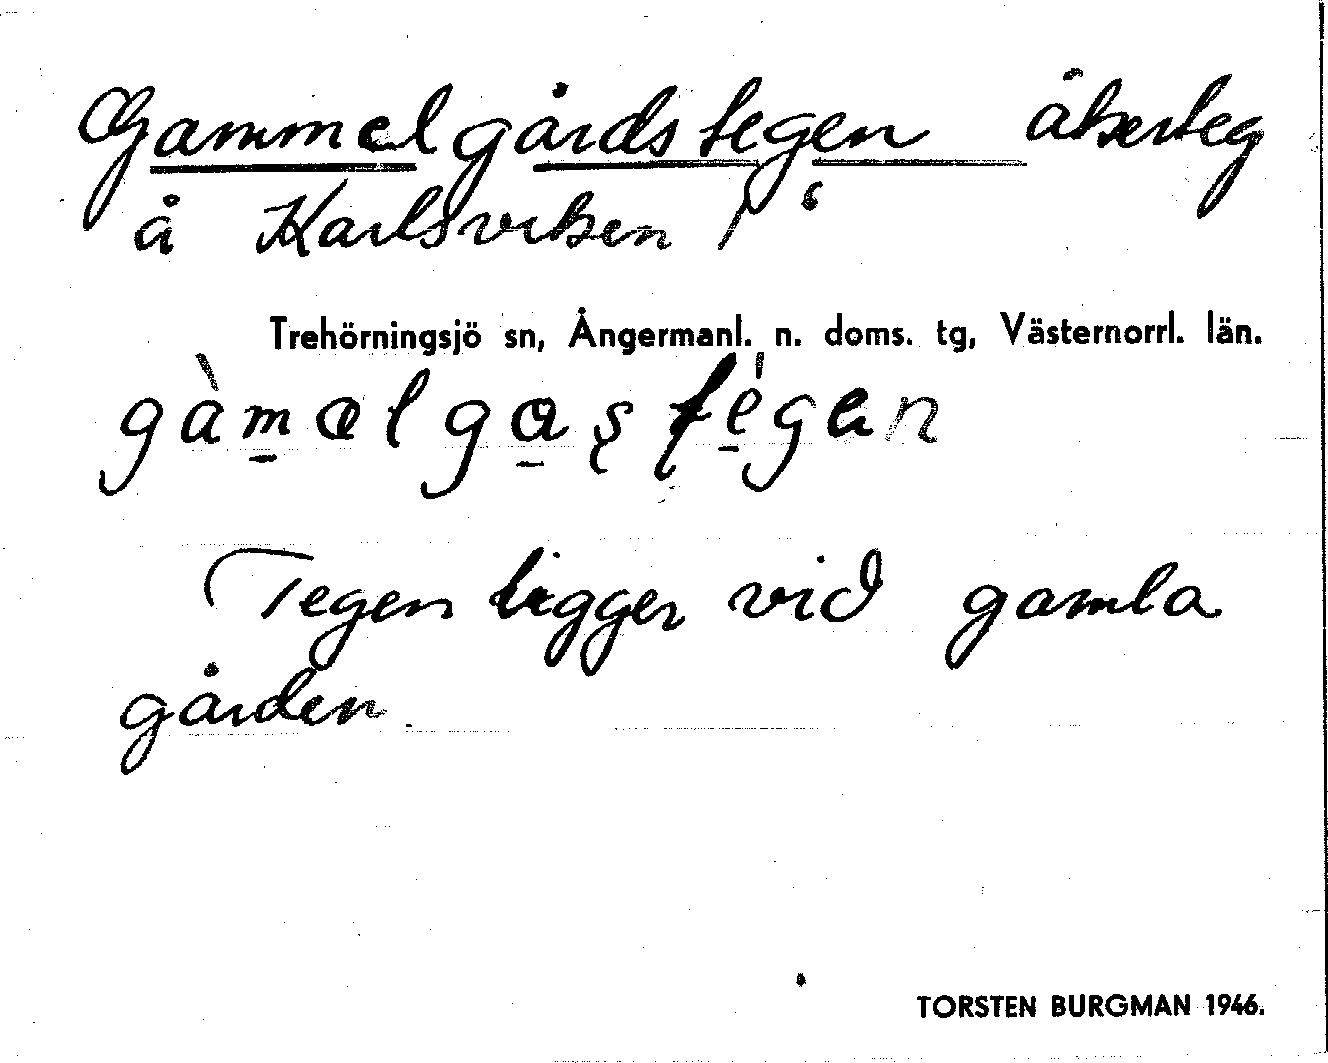 Gammelgårdstegen åkerteg
å Karlsviken 1⁶
Trehörningsjö sn, Ångermanl. n. doms. tg, Västernorrl. län.
gàmælgɑștégen
Tegen ligger vid gamla
gården
TORSTEN BURGMAN 1946.